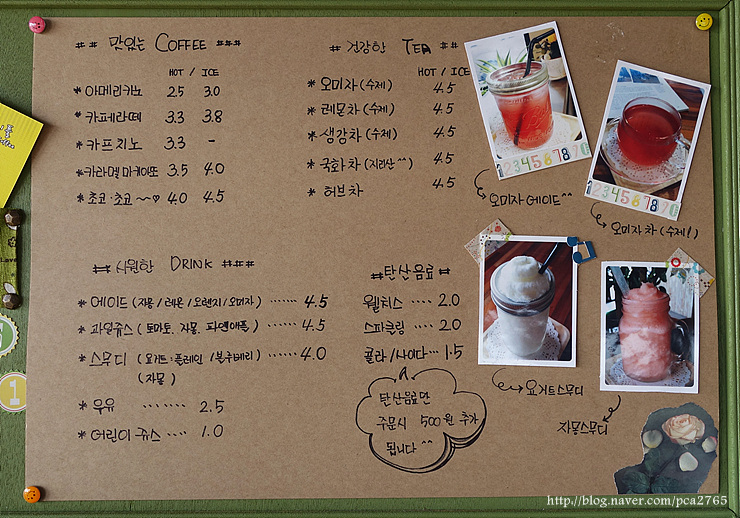 ## 맛있는 COFFEE ###
HOT / ICE
* 아메리카노 2.5 3.0
* 카페라떼 3.3 3.8
* 카프치노 3.3 -
* 카라멜 마키아또 3.5 4.0
* 초코·초코~~♡ 4.0 4.5
# 건강한 TEA ##
HOT / ICE
* 오미자 (수제) 4.5
* 레몬차 (수제) 4.5
* 생강차 (수제) 4.5
* 국화차 (지리산^^) 4.5
* 허브차 4.5
오미자 에이드^^
오미자차 (수제!)
## 시원한 DRINK ###
* 에이드 (자몽/레몬/오렌지/오미자) ······ 4.5
* 과일쥬스 (토마토, 자몽, 파인애플) ······ 4.5
* 스무디 (요거트·플레인/블루베리) ······ 4.0
(자몽)
* 우유 ······· 2.5
* 어린이 쥬스 ···· 1.0
#탄산음료#
웰치스 ···· 2.0
스파클링 ···· 2.0
콜라/사이다 ··· 1.5
탄산음료만
주문시 500원 추가
됩니다^^
요거트스무디
자몽스무디
1234567890
1234567890
1
http://blog.naver.com/pca2765